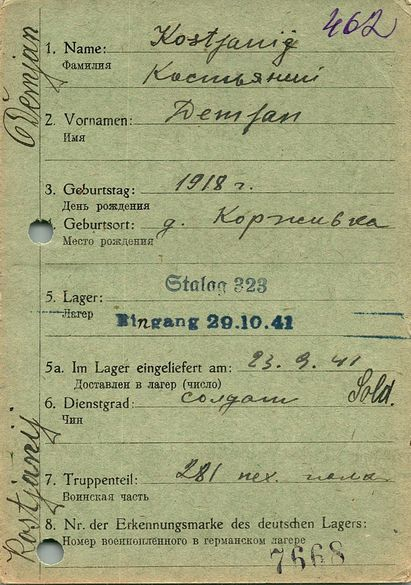 462
Demjan
1. Name: Kostjanij
Фамилия
Костьяний
2. Vornamen: Demjan
Имя
3. Geburtstag: 1918 г.
День рождения
Geburtsort: д. Корживка
Место рождения
Stalag 323
5. Lager:
Лагер
Eingang 29.10.41
5a. Im Lager eingeliefert am: 23. 9. 41
Доставлен в лагер (число)
6. Dienstgrad: солдат Sold.
Чин
Kostjanij
7. Truppenteil: 281 пех.
Воинская часть
8. Nr. der Erkennungsmarke des deutschen Lagers:
Номер военнопленного в германском лагере
7668